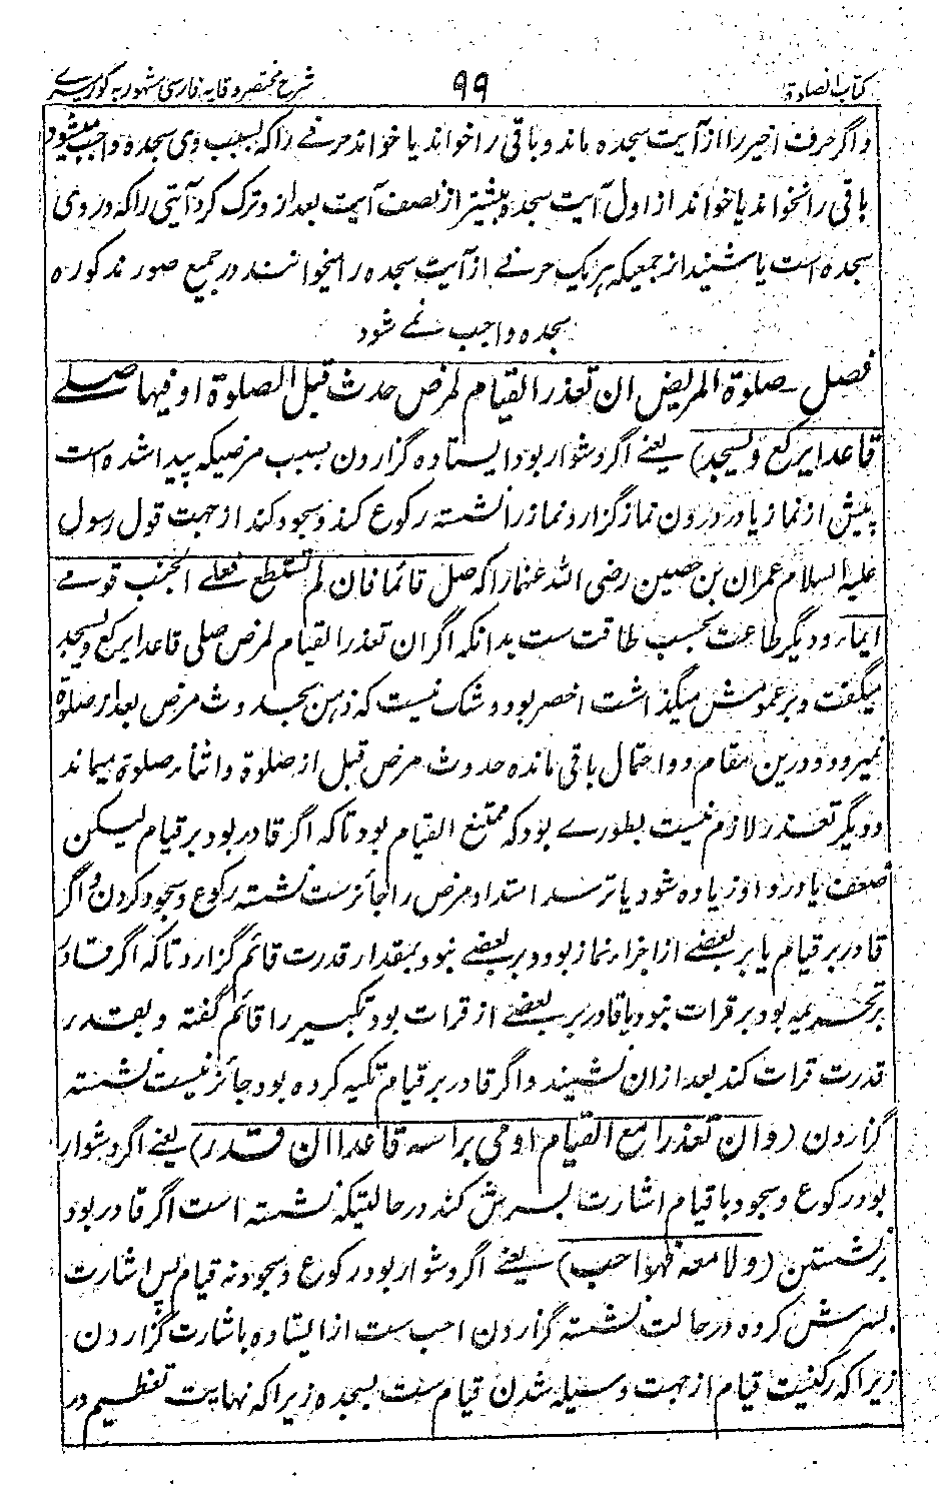 کتاب الصلوة
۹۹
شرح مختصر وقایه فارسی مشهور به کورسرے
و اگر حرف اخیر را از آیت سجده ماند و باقی را خواند یا خواند حرفے را که بسبب وی سجده واجب میشود
باقی را نخواند یا خواند از اول آیت سجده بیشتر از نصف آیت بعد ازو ترک کرد آیتی را که در وی
سجده است یا شنید از جمعیکه هر یک حرفے از آیت سجده را میخوانند در جمیع صور مذکوره
سجده واجب نمے شود
فصل صلوة المریض ان تعذر القیام لمرض حدث قبل الصلوة او فیها صلے
قاعدا یرکع ویسجد) یعنے اگر دشوار بود ایستاده گزاردن بسبب مرضیکه پیدا شده است
پیش از نماز یا در درون نماز گزارد نماز را نشسته رکوع کند و سجود کند از جهت قول رسول
علیه السلام عمران بن حصین رضی الله عنهما را که صل قائما فان لم تستطع فعلے الجنب تومے
ایماء و دیگر طاعت بحسب طاقت ست بدانکه اگر ان تعذر القیام لمرض صلی قاعدا یرکع ویسجد
میگفت و بر عمومش میگذاشت اخصر بود و شک نیست که ذهن بحدوث مرض بعد از صلوة
نمیرود و درین مقام دو احتمال باقی مانده حدوث مرض قبل از صلوة و اثناء صلوة میماند
و دیگر تعذر لازم نیست بطورے بود که ممتنع القیام بود تا که اگر قادر بود بر قیام لیکن
ضعف یا درد او زیاده شود یا ترسد امتداد مرض را جائزست نشسته رکوع و سجود کردن و اگر
قادر بر قیام یا بر بعضے از اجزاء نماز بود و بر بعضے نبود بمقدار قدرت قائم گزارد تا که اگر قادر
بر تحریمه بود بر قرات نبود یا قادر بر بعضے از قرات بود تکبیر را قائم گفته و بقدر
قدرت قرات کند بعد ازان نشیند و اگر قادر بر قیام تکیه کرده بود جائز نیست نشسته
گزاردن (وان تعذرا مع القیام اومی براسه قاعدا ان قدر) یعنے اگر دشوار
بود رکوع و سجود با قیام اشارت بسرش کند در حالتیکه نشسته است اگر قادر بود
بر نشستن (ولا معه فهو احب) یعنے اگر دشوار بود رکوع و سجود نه قیام پس اشارت
بسرش کرده در حالت نشسته گزاردن احب ست از ایستاده باشارت گزاردن
زیرا که رکنیت قیام از جهت وسیله شدن قیام ست بسجده زیرا که نهایت تعظیم در